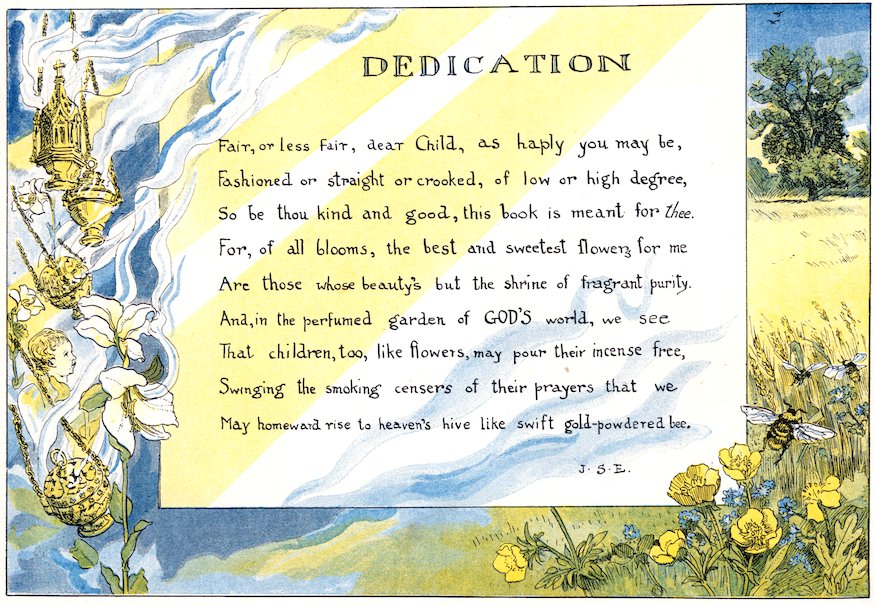 DEDICATION
Fair, or less fair, dear Child, as haply you may be,
Fashioned or straight or crooked, of low or high degree,
So be thou kind and good, this book is meant for thee.
For, of all blooms, the best and sweetest flowers for me
Are those whose beauty's but the shrine of fragrant purity.
And, in the perfumed garden of GOD'S world, we see
That children, too, like flowers, may pour their incense free,
Swinging the smoking censers of their prayers that we
May homeward rise to heaven's hive like swift gold-powdered bee.
J. S. E.